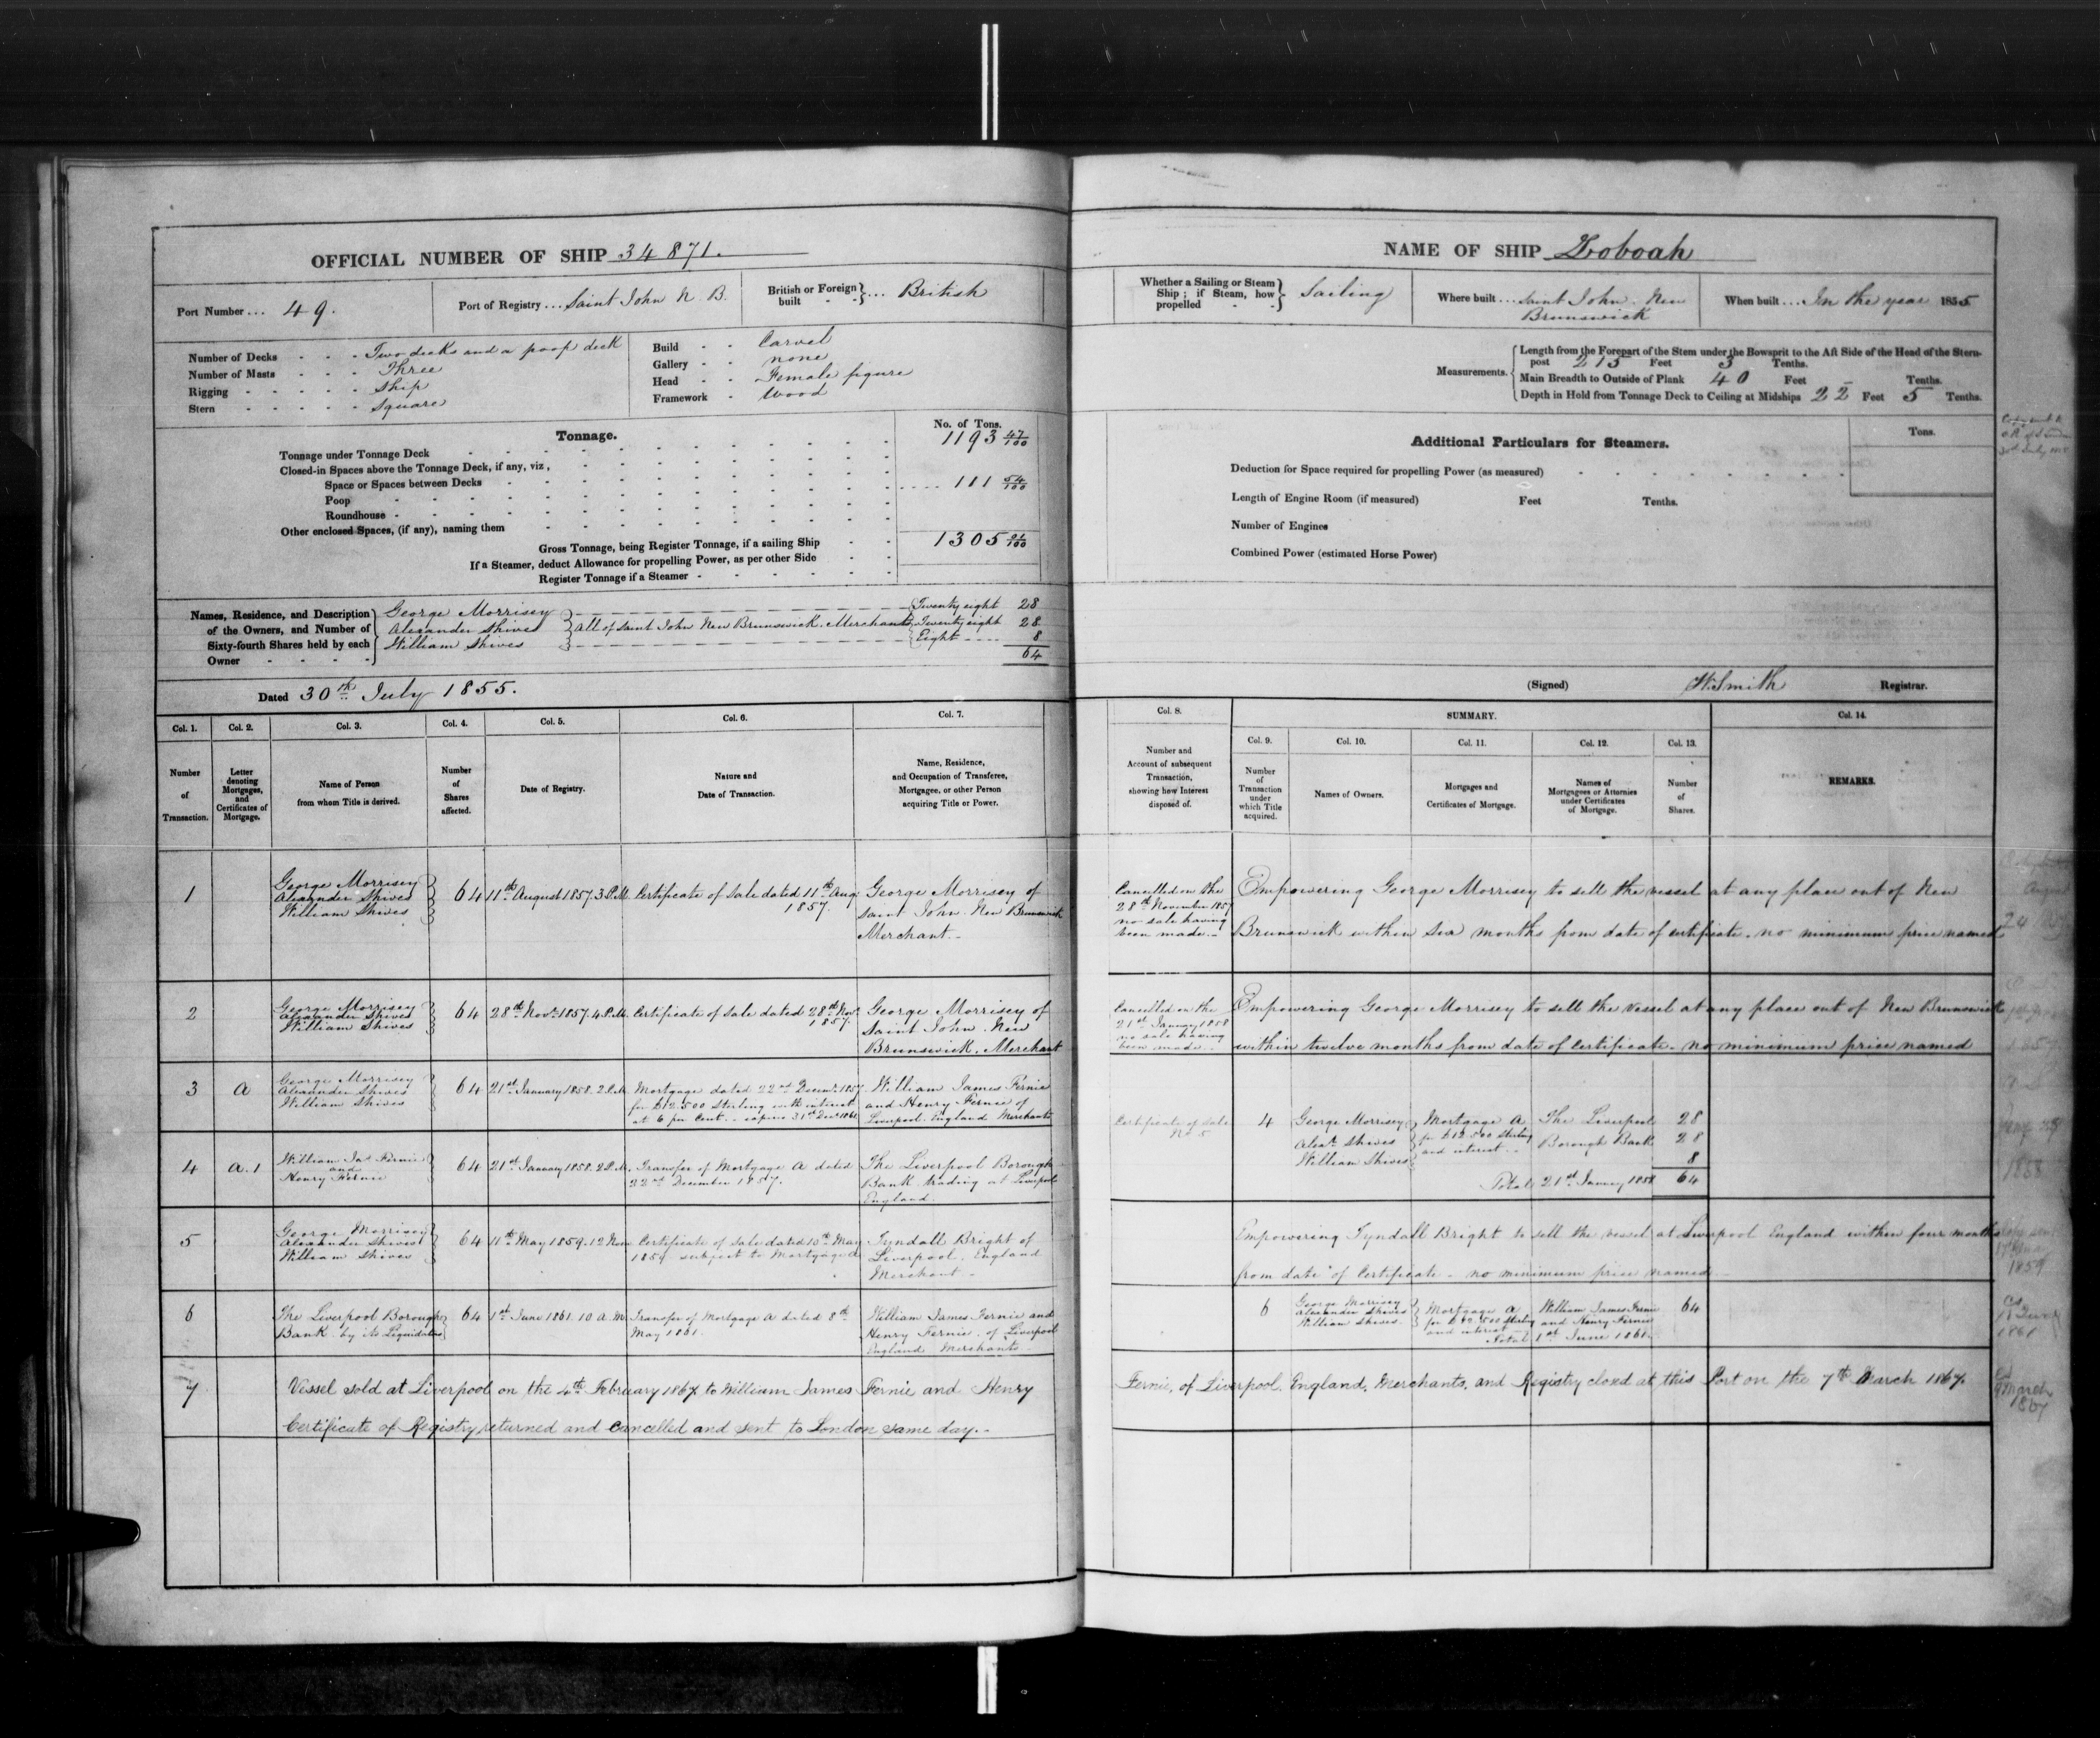 OFFICIAL NUMBER OF SHIP 34871.
Port Number ... 49.
Port of Registry ... Saint John N. B.
British or Foreign built - - } ... British
Number of Decks - - - Two decks and a poop deck
Number of Masts - - - Three
Rigging - - - - - Ship
Stern - - - - - Square
Build - - Carvel
Gallery - - none
Head - - Female figure
Framework - Wood
Tonnage.
No. of Tons.
Tonnage under Tonnage Deck 1193 47/100
Closed-in Spaces above the Tonnage Deck, if any, viz,
Space or Spaces between Decks
Poop 111 54/100
Roundhouse
Other enclosed Spaces, (if any), naming them
Gross Tonnage, being Register Tonnage, if a sailing Ship 1305 01/100
If a Steamer, deduct Allowance for propelling Power, as per other Side
Register Tonnage if a Steamer
Names, Residence, and Description of the Owners, and Number of Sixty-fourth Shares held by each Owner
George Morrisey Twenty eight 28
Alexander Shives } All of Saint John New Brunswick. Merchants Twenty eight 28
William Shives Eight 8
64
Dated 30th July 1855.
Col. 1. Col. 2. Col. 3. Col. 4. Col. 5. Col. 6. Col. 7.
Number of Transaction.
Letter denoting Mortgages, and Certificates of Mortgage.
Name of Person from whom Title is derived.
Number of Shares affected.
Date of Registry.
Nature and Date of Transaction.
Name, Residence, and Occupation of Transferee, Mortgagee, or other Person acquiring Title or Power.
1
George Morrisey
Alexander Shives
William Shives
64
11th August 1857. 3 P.M.
Certificate of Sale dated 11th Aug.
1857.
George Morrisey of
Saint John. New Brunswick
Merchant.
2
George Morrisey
Alexander Shives
William Shives
64
28th Novr 1857. 4 P.M.
Certificate of Sale dated 28th Novr
1857.
George Morrisey of
Saint John. New
Brunswick. Merchant
3
A
George Morrisey
Alexander Shives
William Shives
64
21st January 1858. 2 P.M.
Mortgage dated 22nd Decemr 1857
for £12.500 Sterling with interest
at 6 per Cent. - expires 31st Decr 1861
William James Fernie
and Henry Fernie of
Liverpool. England Merchants
4
A. 1
William Jas Fernie
and
Henry Fernie
64
21st January 1858. 2 P.M.
Transfer of Mortgage A dated
22nd December 1857.
The Liverpool Borough
Bank trading at Liverpool
England.
5
George Morrisey
Alexander Shives
William Shives
64
11th May 1859. 12 Noon
Certificate of Sale dated 10th May
1859 subject to Mortgage A
Tyndall Bright of
Liverpool. England
Merchant
6
The Liverpool Borough
Bank by its Liquidators
64
1st June 1861. 10 A.M.
Transfer of Mortgage A dated 8th
May 1861.
William James Fernie and
Henry Fernie. of Liverpool
England Merchants
7
Vessel sold at Liverpool on the 4th February 1867 to William James Fernie and Henry
Certificate of Registry returned and cancelled and sent to London same day.
NAME OF SHIP Zoboah
Whether a Sailing or Steam Ship; if Steam, how propelled - - } Sailing
Where built ... Saint John. New
Brunswick
When built ... In the year 1855
Measurements.
Length from the Forepart of the Stem under the Bowsprit to the Aft Side of the Head of the Stern-
post 215 Feet 3 Tenths.
Main Breadth to Outside of Plank 40 Feet - Tenths.
Depth in Hold from Tonnage Deck to Ceiling at Midships 22 Feet 5 Tenths.
Additional Particulars for Steamers.
Tons.
Deduction for Space required for propelling Power (as measured)
Length of Engine Room (if measured) Feet Tenths.
Number of Engines
Combined Power (estimated Horse Power)
(Signed) W. Smith Registrar.
Col. 8.
SUMMARY.
Col. 14.
Col. 9. Col. 10. Col. 11. Col. 12. Col. 13.
Number and Account of subsequent Transaction, showing how Interest disposed of.
Number of Transaction under which Title acquired.
Names of Owners.
Mortgages and Certificates of Mortgage.
Names of Mortgagees or Attornies under Certificates of Mortgage.
Number of Shares.
REMARKS.
Cancelled on the
28th November 1857
no sale having
been made.
Empowering George Morrisey to sell the vessel at any place out of New
Brunswick within six months from date of certificate. no minimum price named
Cancelled on the
21st January 1858
no sale having
been made.
Empowering George Morrisey to sell the vessel at any place out of New Brunswick
within twelve months from date of Certificate. no minimum price named
Certificate of Sale
No 5
4
George Morrisey
Alexr Shives
William Shives
Mortgage A
for £12.500 Sterling
and interest.
The Liverpool
Borough Bank
28
28
8
Total 21st January 1858 64
Empowering Tyndall Bright to sell the vessel at Liverpool England within four months
from date of Certificate - no minimum price named
6
George Morrisey
Alexander Shives
William Shives
Mortgage A
for £12.500 Sterling
and interest
William James Fernie
and Henry Fernie
64
Total 1st June 1861
Fernie, of Liverpool. England. Merchants. and Registry closed at this Port on the 7th March 1867.
August
24
1858
1859
1861
9 March
1867